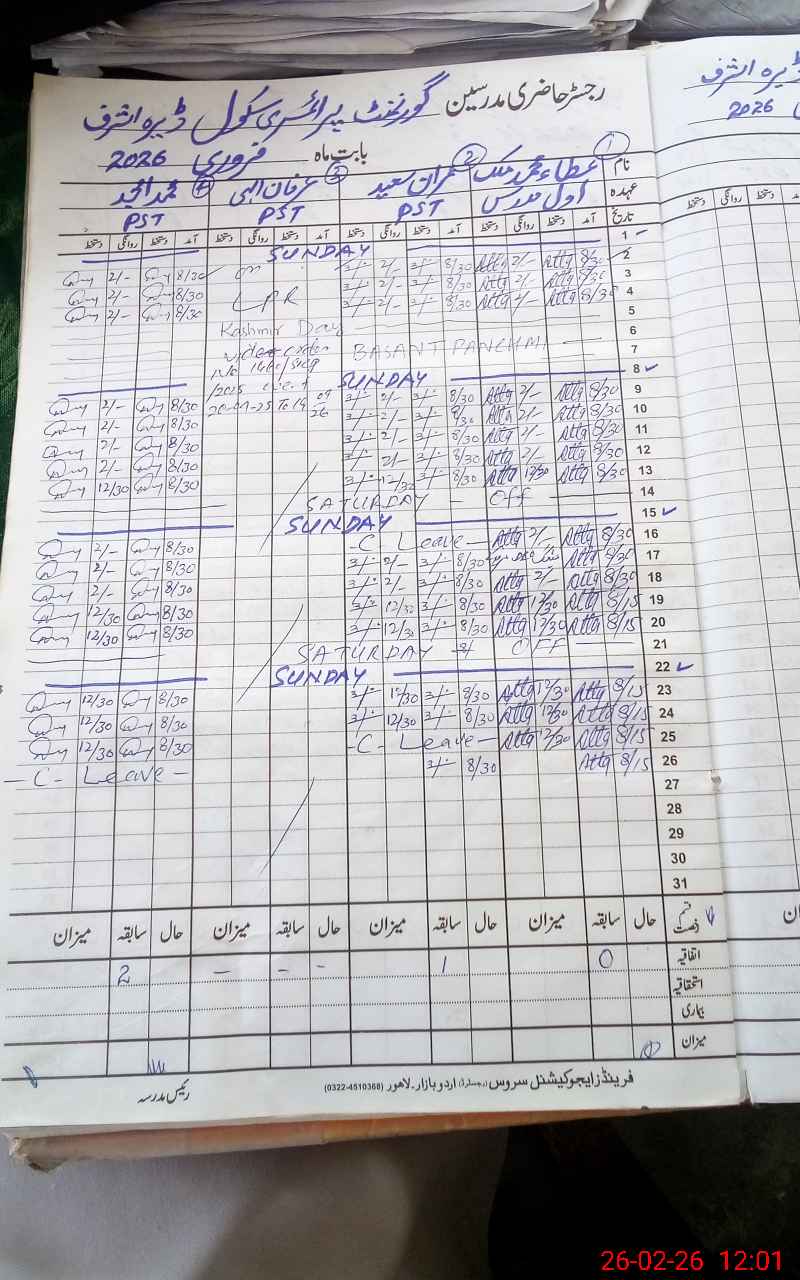 رجسٹر حاضری مدرسین گورنمنٹ پرائمری سکول ڈیرہ اشرف
بابت ماہ فروری 2026
نام ① عطاء محمد ملک ② عمران سعید ③ عرفان الہی ④ محمد امجد
عہدہ اول مدرس PST PST PST
تاریخ آمد دستخط روانگی دستخط آمد دستخط روانگی دستخط آمد دستخط روانگی دستخط آمد دستخط روانگی دستخط
1 SUNDAY
2 8/30 Attq 2/- Attq 8/30 2/- 8/30 2/-
3 8/30 Attq 2/- Attq 8/30 2/- LPR 8/30 2/-
4 8/30 Attq 2/- Attq 8/30 2/- 8/30 2/-
5 Kashmir Day
6 BASANT PANCHMI
7
8 SUNDAY
9 8/30 Attq 2/- Attq 8/30 2/- 8/30 2/-
10 8/30 Attq 2/- Attq 8/30 2/- 8/30 2/-
11 8/30 Attq 2/- Attq 8/30 2/- 8/30 2/-
12 8/30 Attq 2/- Attq 8/30 2/- 8/30 2/-
13 8/30 Attq 12/30 Attq 8/30 12/30 8/30 12/30
14 SATURDAY - Off
15 SUNDAY
16 8/30 Attq 2/- Attq -C- Leave- 8/30 2/-
17 8/30 Attq 8/30 2/- 8/30 2/-
18 8/30 Attq 2/- Attq 8/30 2/- 8/30 2/-
19 8/15 Attq 12/30 Attq 8/30 12/30 8/30 12/30
20 8/15 Attq 12/30 Attq 8/30 12/30 8/30 12/30
21 SATURDAY OFF
22 SUNDAY
23 8/15 Attq 12/30 Attq 8/30 12/30 8/30 12/30
24 8/15 Attq 12/30 Attq 8/30 12/30 8/30 12/30
25 8/15 Attq 12/30 Attq -C- Leave- 8/30 12/30
26 8/15 Attq 8/30 -C- Leave-
27
28
29
30
31
قسم رخصت حال سابقہ میزان حال سابقہ میزان حال سابقہ میزان حال سابقہ میزان
اتفاقیہ 0 1 - - - 2
استحقاقیہ
بیماری
میزان
فرینڈز ایجوکیشنل سروس (رجسٹرڈ) اردو بازار۔ لاہور (0322-4510368)
رئیس مدرسہ
ڈیرہ اشرف
2026
26-02-26 12:01